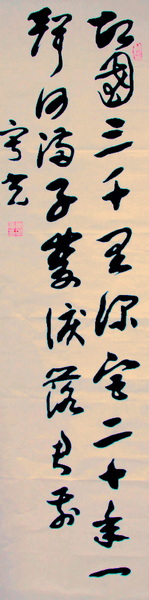 故國三千里深宮二十年一
聲何滿子雙淚落君前